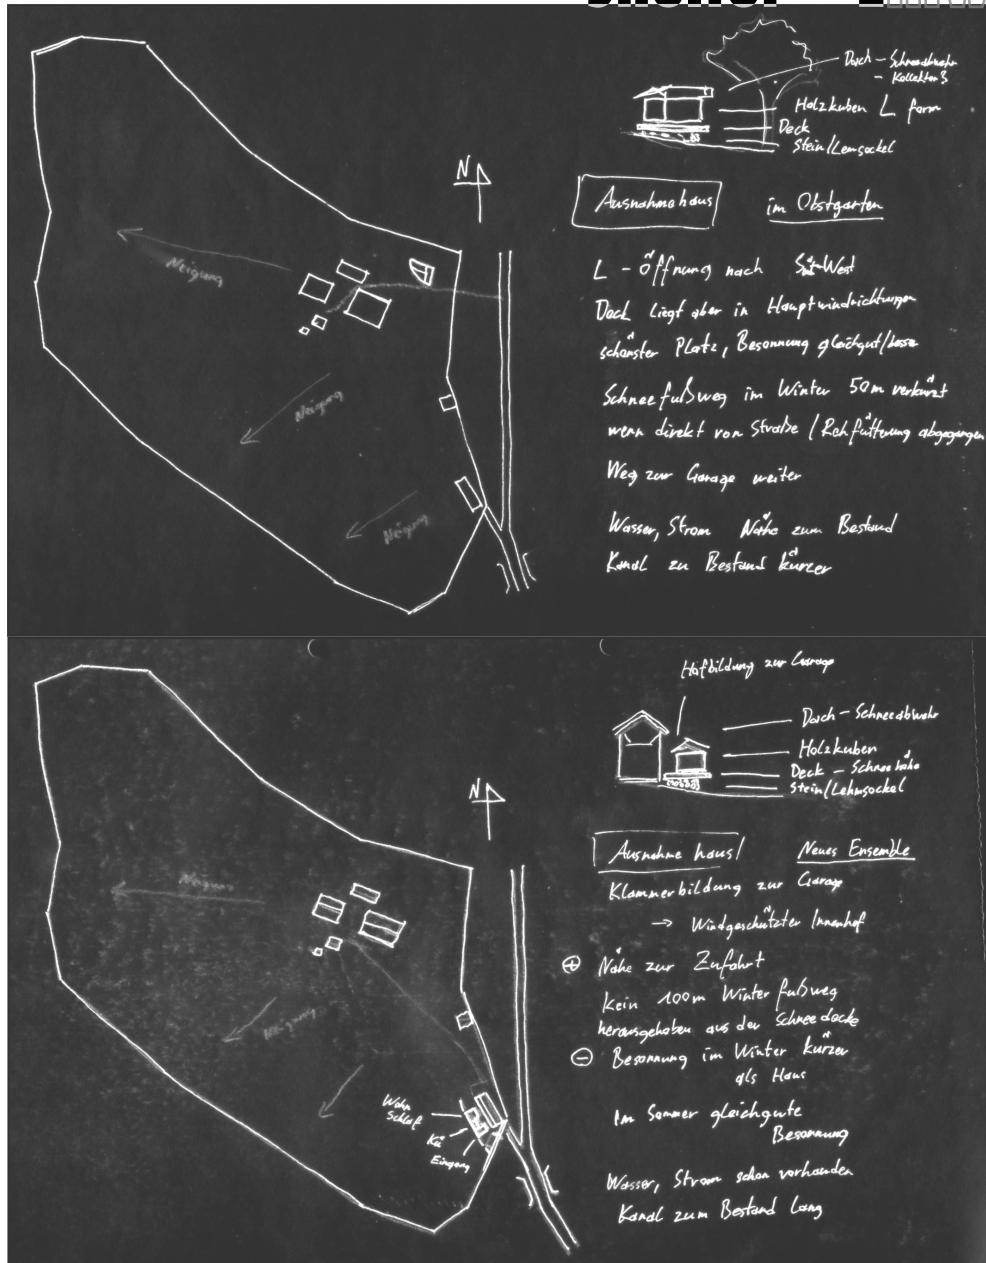 Dach - Schneeabwehr
- Kollektor S
Holzkuben L form
Deck
Stein/Lemsockel
N
Ausnahmehaus im Obstgarten
Neigung
L - Öffnung nach Süd-West
Deck liegt aber in Hauptwindrichtungen
schönster Platz, Besonnung gleichgut/besser
Neigung
Schneefußweg im Winter 50m verkürzt
wenn direkt von Straße / Rehfütterung abgegangen
Weg zur Garage weiter
Neigung
Wasser, Strom Nähe zum Bestand
Kanal zu Bestand kürzer
Hofbildung zur Garage
Dach - Schneeabwehr
Holzkuben
Deck - Schneehöhe
Stein/Lehmsockel
N
Ausnahmehaus Neues Ensemble
Klammerbildung zur Garage
Neigung
→ Windgeschützter Innenhof
⊕ Nähe zur Zufahrt
Kein 100m Winterfußweg
herausgehoben aus der Schneedecke
Neigung
⊖ Besonnung im Winter kürzer
als Haus
Wohn
Schlaf
Kü
Eingang
Im Sommer gleichgute
Besonnung
Wasser, Strom schon vorhanden
Kanal zum Bestand lang